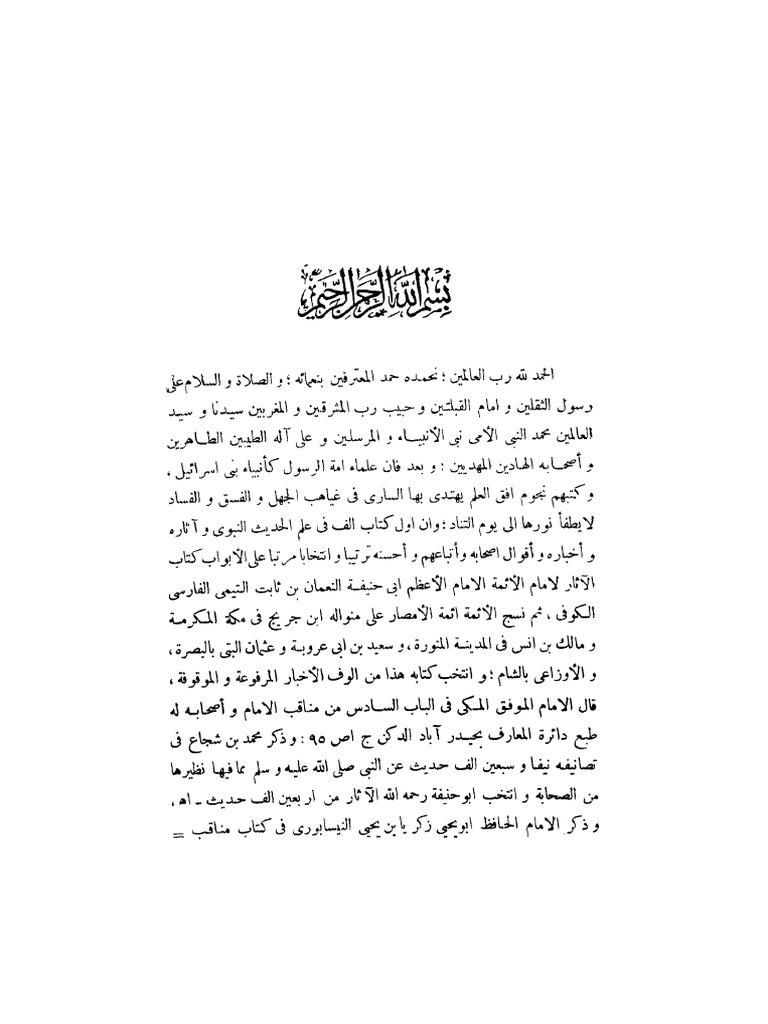 بسم الله الرحمن الرحيم
الحمد لله رب العالمين ؛ نحمده حمد المعترفين بنعمائه ؛ و الصلاة و السلام على
رسول الثقلين و امام القبلتين و حبيب رب المشرقين و المغربين سيدنا و سيد
العالمين محمد النبى الأمى نبى الأنبياء و المرسلين و على آله الطيبين الطاهرين
و أصحابه الهادين المهديين : و بعد فان علماء امة الرسول كأنبياء بنى اسرائيل ،
و كتبهم نجوم افق العلم يهتدى بها السارى فى غياهب الجهل و الفسق و الفساد
لا يطفأ نورها الى يوم التناد ؛ وان اول كتاب الف فى علم الحديث النبوى و آثاره
و أخباره و أقوال اصحابه وأتباعهم و أحسنه ترتيبا و انتخابا مرتبا على الأبواب كتاب
الآثار لامام الأئمة الامام الأعظم ابى حنيفة النعمان بن ثابت التيمى الفارسى
الكوفى ، ثم نسج الأئمة ائمة الأمصار على منواله ابن جريج فى مكة المكرمة
و مالك بن انس فى المدينة المنورة ، و سعيد بن ابى عروبة و عثمان البتى بالبصرة ،
و الأوزاعى بالشام ؛ و انتخب كتابه هذا من الوف الأخبار المرفوعة و الموقوفة ،
قال الامام الموفق المكى فى الباب السادس من مناقب الامام و أصحابه له
طبع دائرة المعارف بحيدر آباد الدكن ج ١ ص ٩٥ : و ذكر محمد بن شجاع فى
تصانيفه نيفا و سبعين الف حديث عن النبى صلى الله عليه و سلم مما فيها نظيرها
من الصحابة و انتخب ابو حنيفة رحمه الله الآثار من اربعين الف حديث ـ اه ،
و ذكر الامام الحافظ ابو يحيى زكريا بن يحيى النيسابورى فى كتاب مناقب =